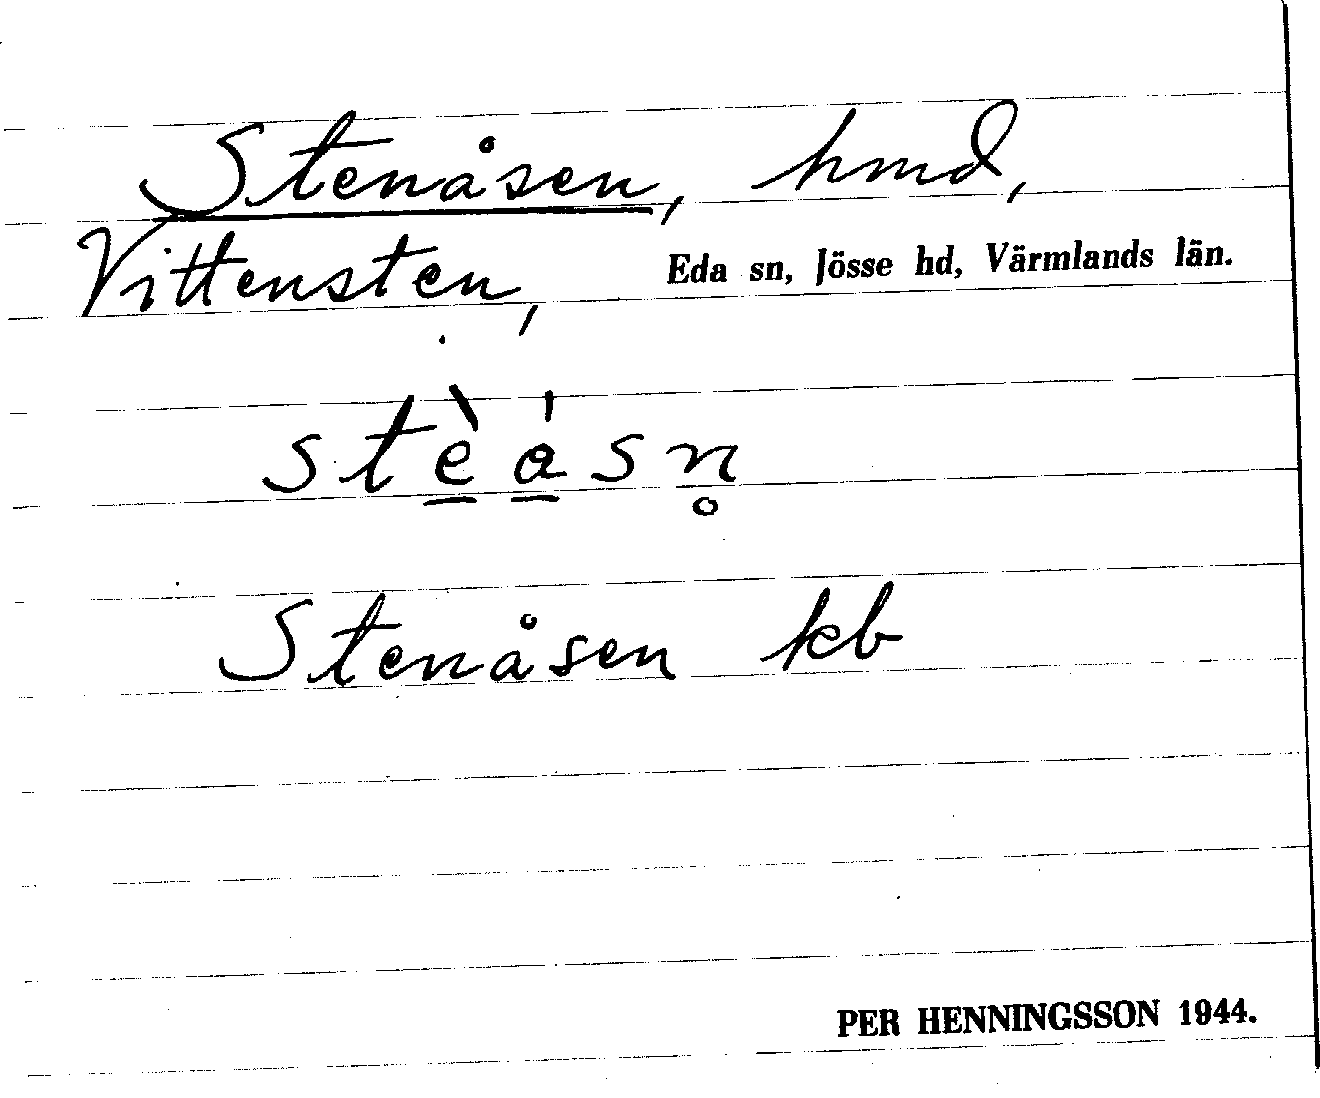 Stenåsen, hmd,
Vittensten, Eda sn, Jösse hd, Värmlands län.
stè̠á̠sn̥
Stenåsen kb
PER HENNINGSSON 1944.